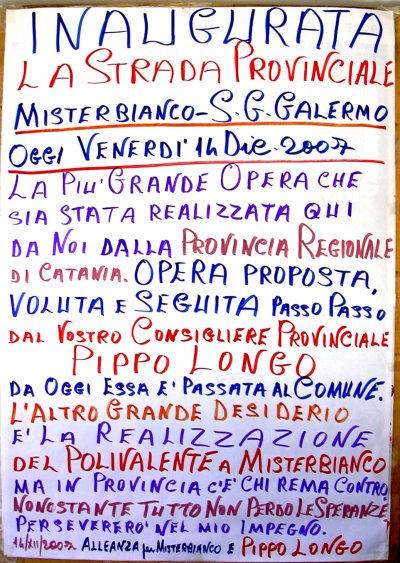 INAUGURATA
LA STRADA PROVINCIALE
MISTERBIANCO-S.G.GALERMO
OGGI VENERDI' 14 DIC. 2007
LA PIU' GRANDE OPERA CHE
SIA STATA REALIZZATA QUI
DA NOI DALLA PROVINCIA REGIONALE
DI CATANIA. OPERA PROPOSTA,
VOLUTA E SEGUITA PASSO PASSO
DAL VOSTRO CONSIGLIERE PROVINCIALE
PIPPO LONGO
DA OGGI ESSA E' PASSATA AL COMUNE.
L'ALTRO GRANDE DESIDERIO
E' LA REALIZZAZIONE
DEL POLIVALENTE A MISTERBIANCO
MA IN PROVINCIA C'E' CHI REMA CONTRO,
NONOSTANTE TUTTO NON PERDO LE SPERANZE
PERSEVERERO' NEL MIO IMPEGNO.
14/XII/2007 ALLEANZA per MISTERBIANCO E PIPPO LONGO